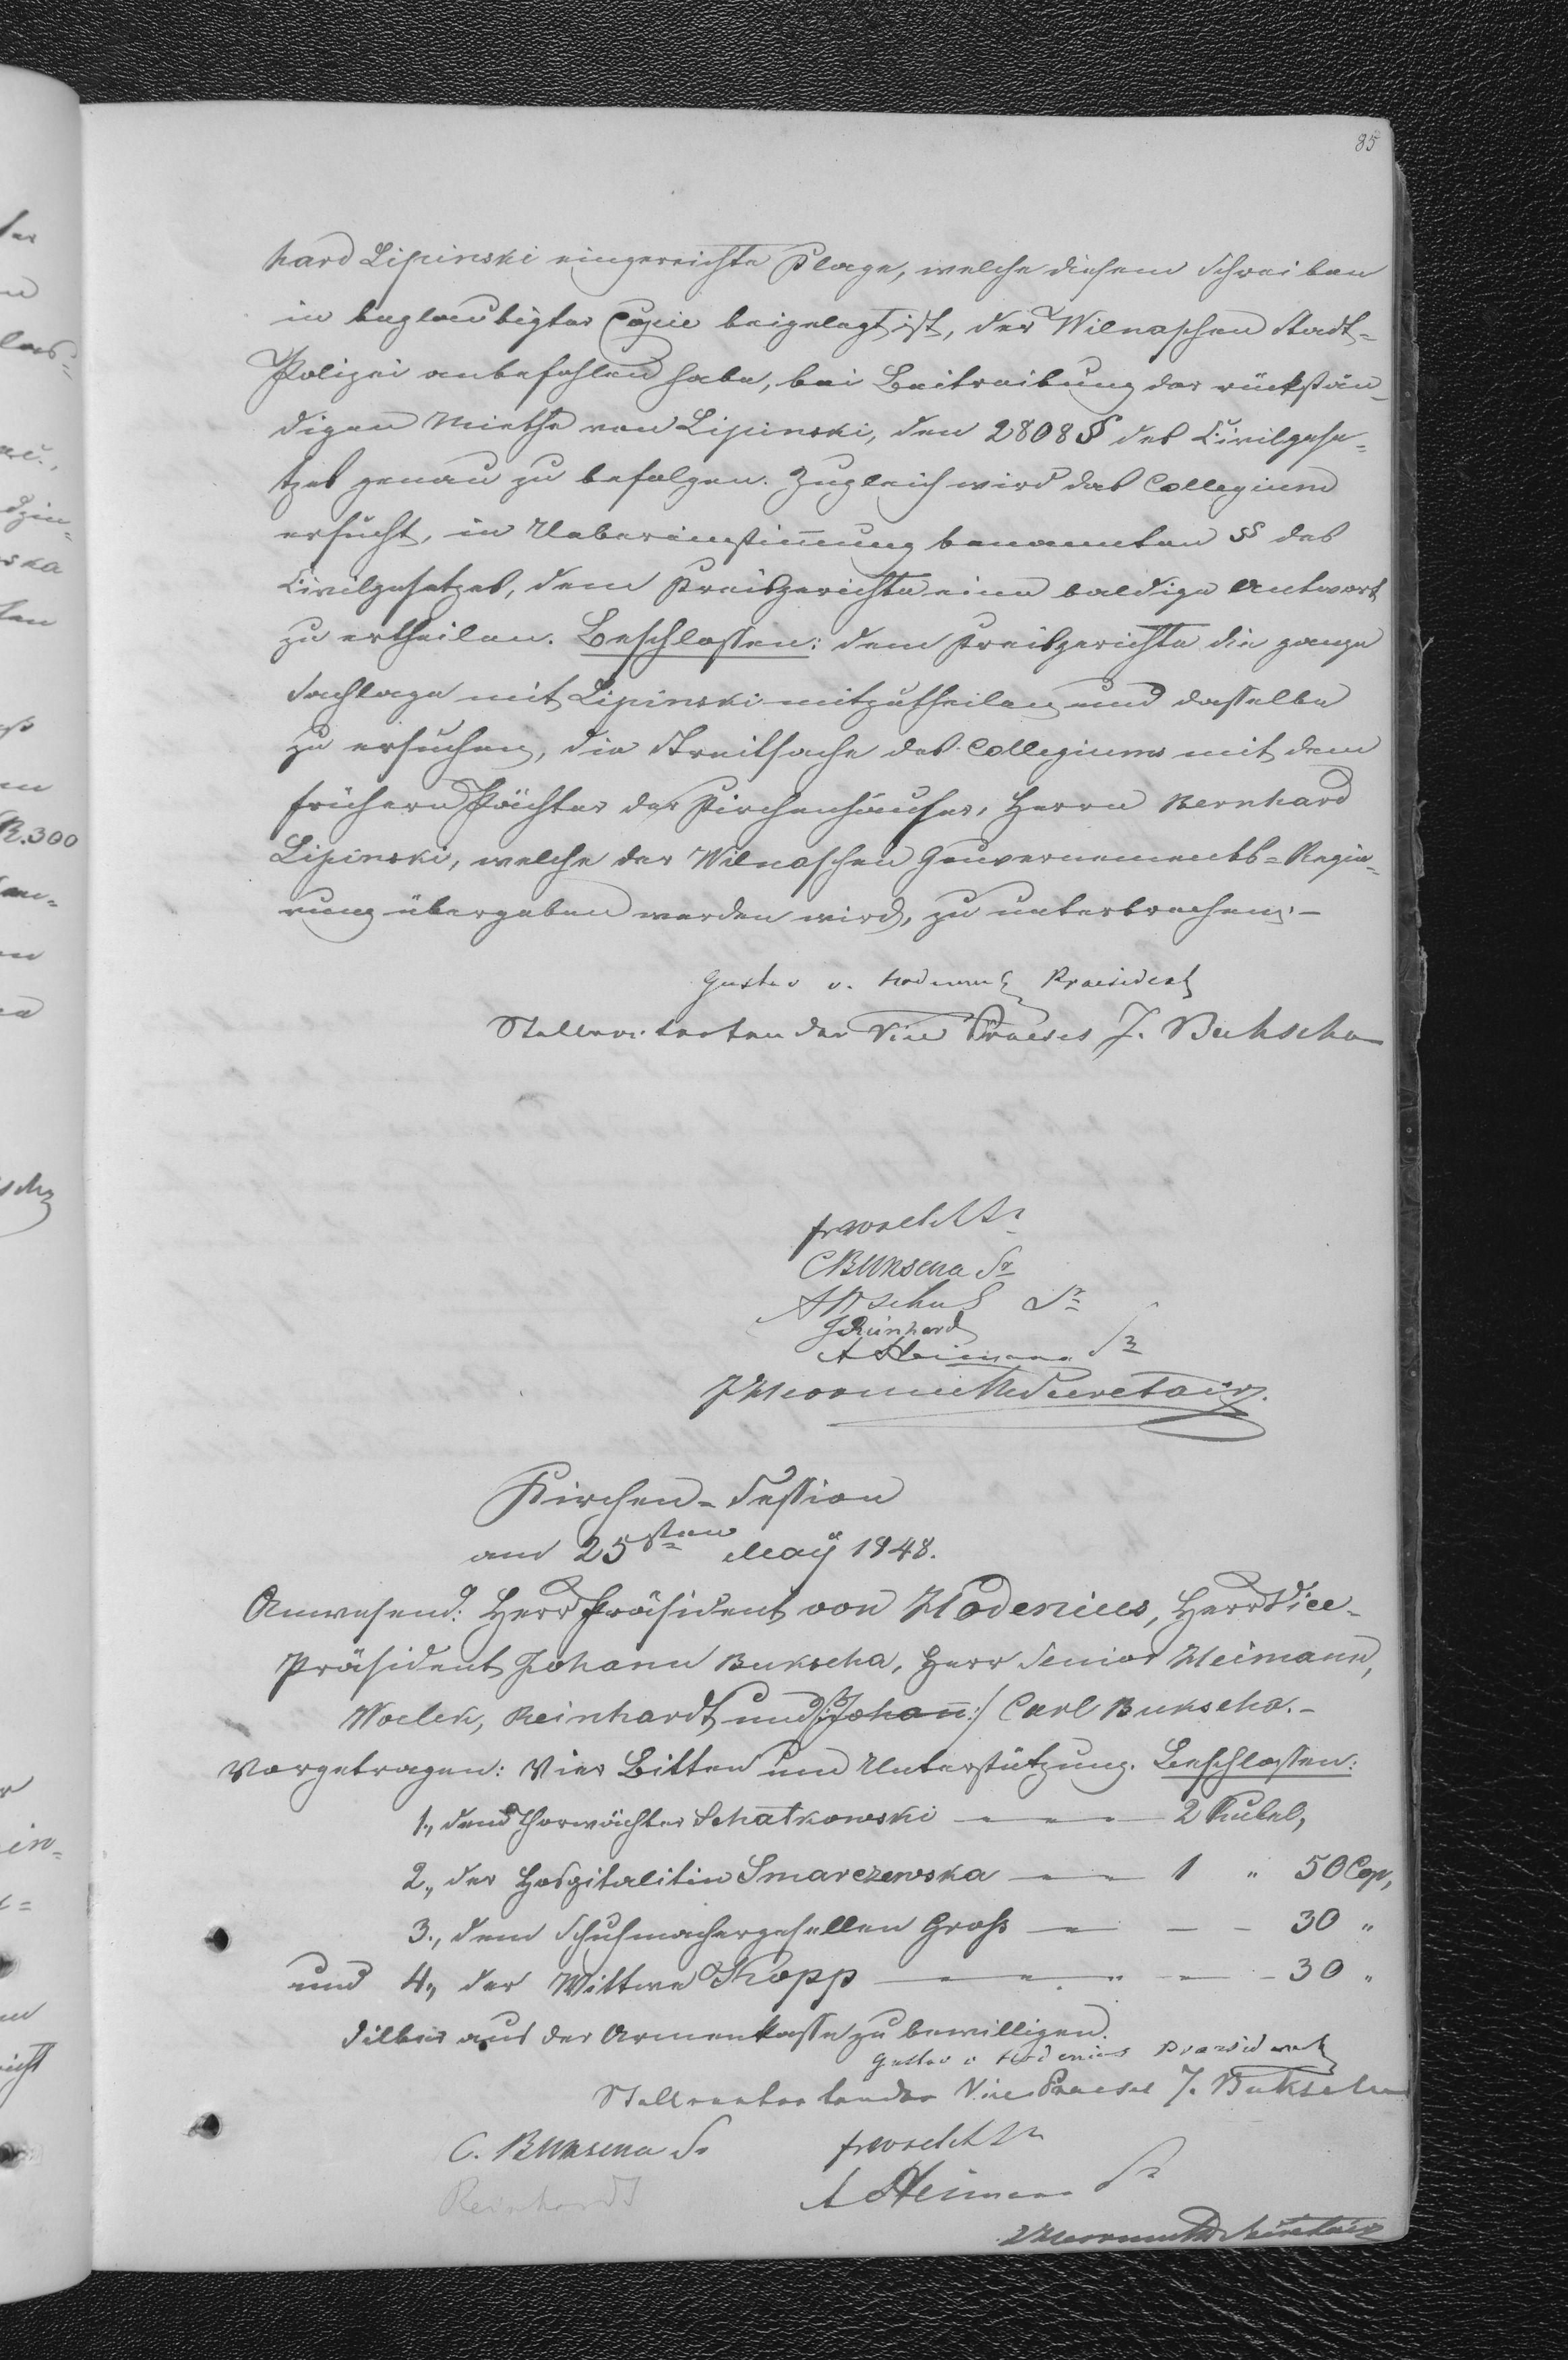 85
hard Lipinski eingereichte Klage, welche diesem Schreiben
in beglaubigter Copie beigelegt ist, der Wilnaschen Stadt-
Polizei anbefohlen habe, bei Beitreibung der rückstän-
digen Miethe von Lipinski, den 2808 § des Civilgese-
tzes genau zu befolgen. Zugleich wird das Collegium
ersucht, in Uebereinstim̄ung benannten §§ des
Civilgesetzes, dem Kreisgerichte eine baldige Antwort
zu ertheilen. Beschlossen: dem Kreisgerichte die ganze
Sachlage mit Lipinski mitzutheilen und dasselbe
zu ersuchen, die Streitsache des Collegiums mit dem
frühern Pächter der Kirchenhäuser, Herrn Bernhard
Lipinski, welche der Wilnaschen Gouvernements-Regie-
rung übergeben werden wird, zu unterbrechen.-
Gustav v. Hodenius Praesident
Stellvertretender Vice Praeses J. Bukscha
C Bukscha Sr
J Reinhard
A Heimann Sr
Secretair.
Kirchen-Session
am 25sten Maÿ 1848.
Anwesend: Herr Präsident von Hodenius, Herr Vice-
Präsident Johann Bukscha, Herr Senior Heimann,
Woelck, Reinhardt und /:Johan̄:/ Carl Bukscha.-
Vorgetragen: Vier Bitten um Unterstützung. Beschlossen:
1., dem Thorwächter Schatkowski — — — 2 Rubel,
2., der Hospitalitin Smarczewska — — 1 " 50 Cop,
3., dem Schuhmachergesellen Groß — — — 30 "
und 4., der Wittwe Kopp — — — — 30 "
Silber aus der Armenkasse zu bewilligen.
Gustav v Hodenius Praesident
Stellvertretender Vice Praeses J. Bukscha
C. Bukscha Sr
Reinhardt
A Heimann Sr
Secretair